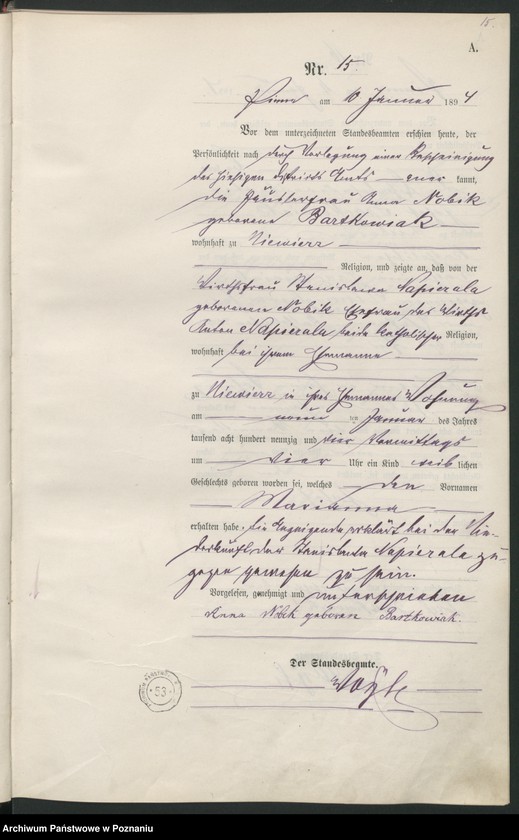 15.
A.
Nr. 15.
Pinne am 10 Januar 1894
Vor dem unterzeichneten Standesbeamten erschien heute, der
Persönlichkeit nach durch Vorlegung einer Bescheinigung
des hiesigen Distrikts Amts kannt,
die Häuslerfrau Anna Nobik
geborene Bartkowiak
wohnhaft zu Niewierz
Religion, und zeigte an, daß von der
Wirthsfrau Stanislawa Napierala
geborenen Nobik Ehefrau des Wirths
Anton Napierala beide katholischer Religion,
wohnhaft bei ihrem Ehemanne
zu Niewierz in ihres Ehemannes Wohnung
am neun ten Januar des Jahres
tausend acht hundert neunzig und vier Vormittags
um vier Uhr ein Kind weib lichen
Geschlechts geboren worden sei, welches den Vornamen
Marianna
erhalten habe. Die Anzeigende erklärt bei der Nie-
derkunft der Stanislawa Napierala zu-
gegen gewesen zu sein.
Vorgelesen, genehmigt und unterschrieben
Anna Nobik geborene Bartkowiak.
Der Standesbeamte.
53
Archiwum Państwowe w Poznaniu